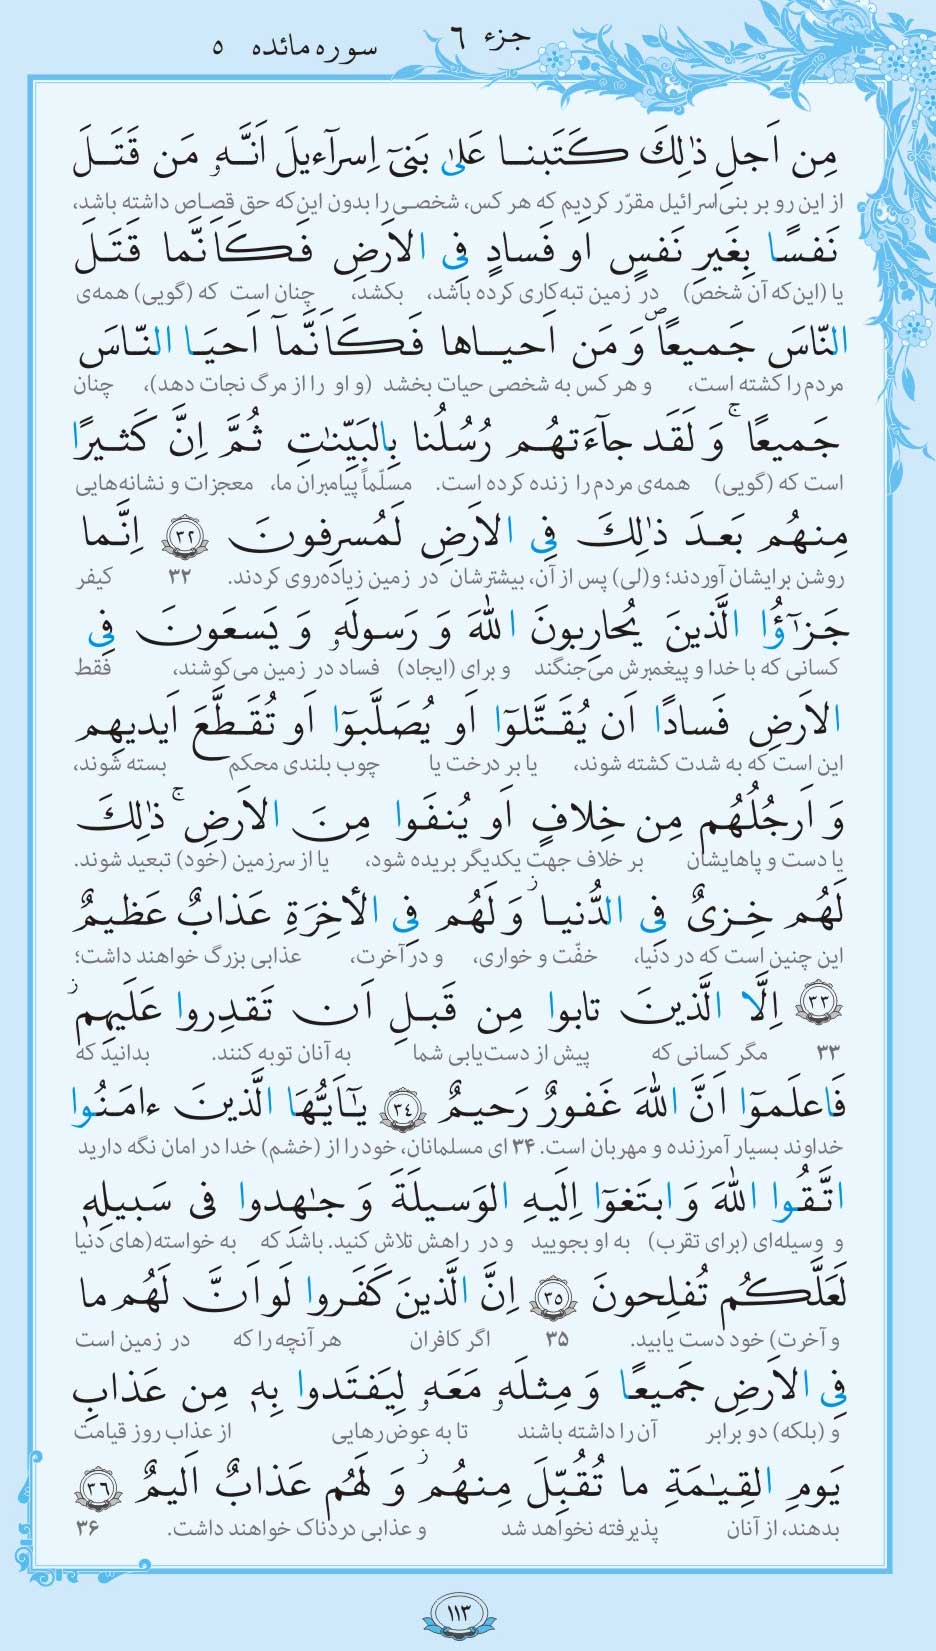 جزء ٦ سوره مائده ٥
مِن اَجلِ ذٰلِكَ كَتَبنا عَلىٰ بَنىٓ اِسرآءيلَ اَنَّهٗ مَن قَتَلَ
از این رو بر بنی‌اسرائیل مقرّر کردیم که هر کس، شخصی را بدون این‌که حق قصاص داشته باشد،
نَفسًا بِغَيرِ نَفسٍ اَو فَسادٍ فِى الاَرضِ فَكَاَنَّما قَتَلَ
یا (این‌که آن شخص) در زمین تبه‌کاری کرده باشد، بکشد، چنان است که (گویی) همه‌ی
النّاسَ جَميعًاۖ وَ مَن اَحياها فَكَاَنَّمآ اَحيَا النّاسَ
مردم را کشته است، و هر کس به شخصی حیات بخشد (و او را از مرگ نجات دهد)، چنان
جَميعًاۚ وَ لَقَد جآءَتهُم رُسُلُنا بِالبَيِّنٰتِ ثُمَّ اِنَّ كَثيرًا
است که (گویی) همه‌ی مردم را زنده کرده است. مسلّماً پیامبران ما، معجزات و نشانه‌هایی
مِنهُم بَعدَ ذٰلِكَ فِى الاَرضِ لَمُسرِفونَ ٣٢ اِنَّما
روشن برایشان آوردند؛ و(لی) پس از آن، بیشترشان در زمین زیاده‌روی کردند. ۳۲ کیفر
جَزٰٓؤُا الَّذينَ يُحارِبونَ اللهَ وَ رَسولَهٗ وَ يَسعَونَ فِى
کسانی که با خدا و پیغمبرش می‌جنگند و برای (ایجاد) فساد در زمین می‌کوشند، فقط
الاَرضِ فَسادًا اَن يُقَتَّلوٓا اَو يُصَلَّبوٓا اَو تُقَطَّعَ اَيديهِم
این است که به شدت کشته شوند، یا بر درخت یا چوب بلندی محکم بسته شوند،
وَ اَرجُلُهُم مِن خِلافٍ اَو يُنفَوا مِنَ الاَرضِۚ ذٰلِكَ
یا دست و پاهایشان بر خلاف جهت یکدیگر بریده شود، یا از سرزمین (خود) تبعید شوند.
لَهُم خِزىٌ فِى الدُّنياۖ وَ لَهُم فِى الأخِرَةِ عَذابٌ عَظيمٌ
این چنین است که در دنیا، خفّت و خواری، و در آخرت، عذابی بزرگ خواهند داشت؛
٣٣ اِلَّا الَّذينَ تابوا مِن قَبلِ اَن تَقدِروا عَلَيهِمۖ
۳۳ مگر کسانی که پیش از دست‌یابی شما به آنان توبه کنند. بدانید که
فَاعلَموٓا اَنَّ اللهَ غَفورٌ رَحيمٌ ٣٤ يٰٓاَيُّهَا الَّذينَ ءامَنُوا
خداوند بسیار آمرزنده و مهربان است. ۳۴ ای مسلمانان، خود را از (خشم) خدا در امان نگه دارید
اتَّقُوا اللهَ وَ ابتَغوٓا اِلَيهِ الوَسيلَةَ وَ جٰهِدوا فى سَبيلِهٖ
و وسیله‌ای (برای تقرب) به او بجویید و در راهش تلاش کنید. باشد که به خواسته(های دنیا
لَعَلَّكُم تُفلِحونَ ٣٥ اِنَّ الَّذينَ كَفَروا لَو اَنَّ لَهُم ما
و آخرت) خود دست یابید. ۳۵ اگر کافران هر آنچه را که در زمین است
فِى الاَرضِ جَميعًا وَ مِثلَهٗ مَعَهٗ لِيَفتَدوا بِهٖ مِن عَذابِ
و (بلکه) دو برابر آن را داشته باشند تا به عوض رهایی از عذاب روز قیامت
يَومِ القِيٰمَةِ ما تُقُبِّلَ مِنهُمۖ وَ لَهُم عَذابٌ اَليمٌ ٣٦
بدهند، از آنان پذیرفته نخواهد شد و عذابی دردناک خواهند داشت. ۳۶
١١٣